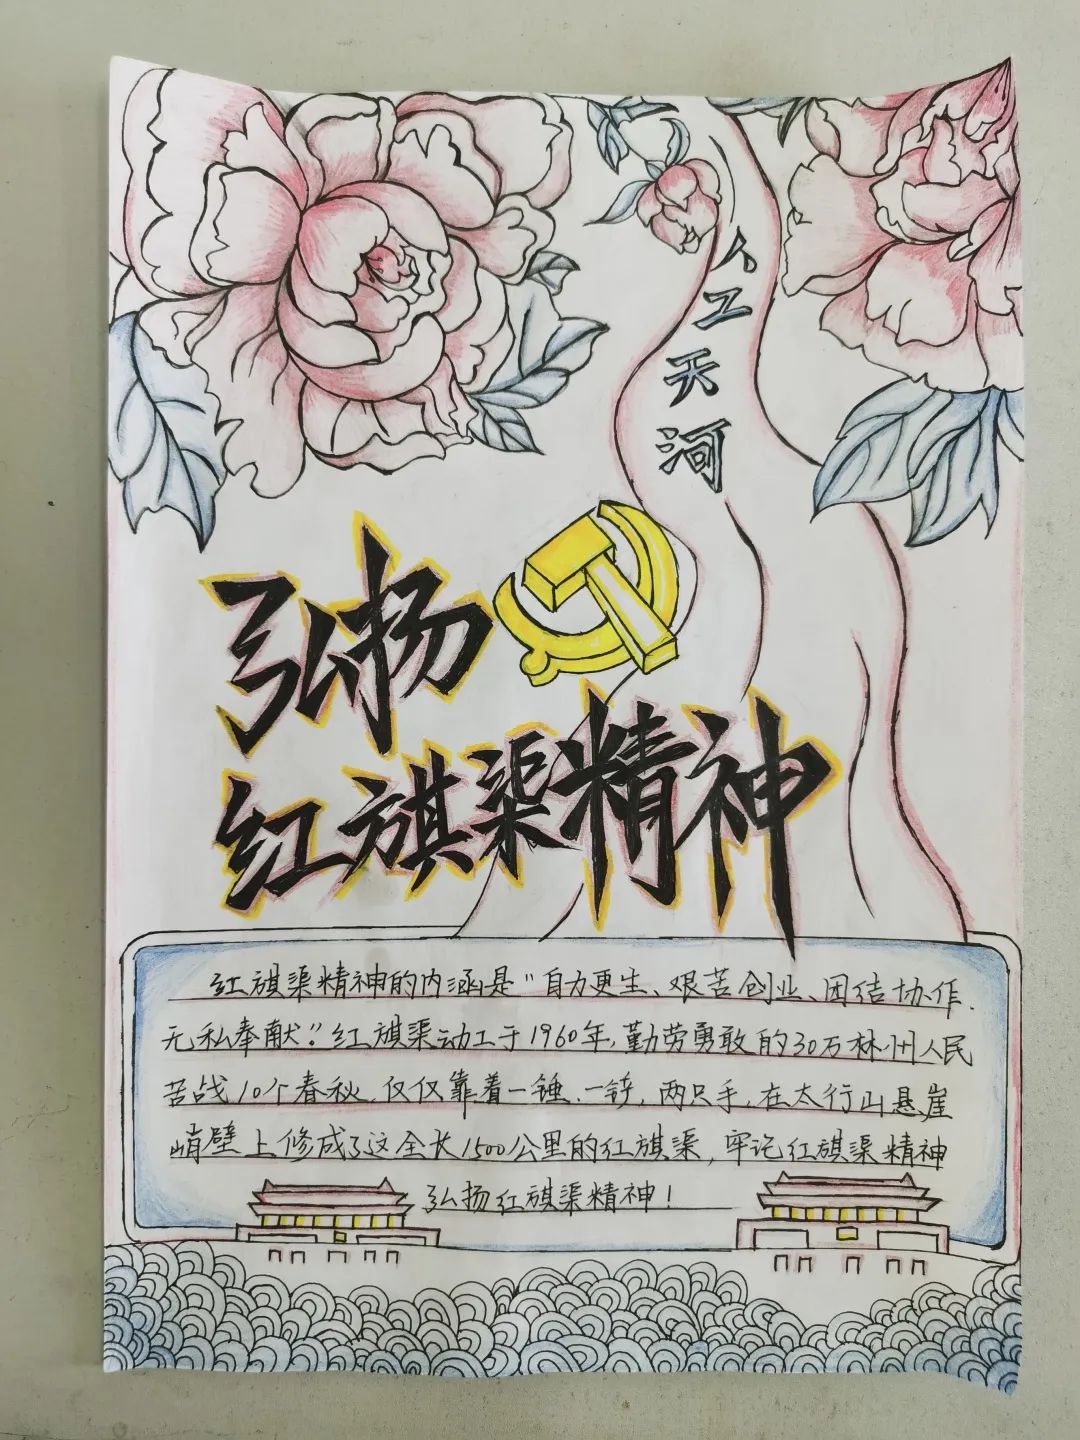 人工天河
弘扬
红旗渠精神
红旗渠精神的内涵是"自力更生、艰苦创业、团结协作、
无私奉献"。红旗渠动工于1960年,勤劳勇敢的30万林州人民
苦战10个春秋,仅仅靠着一锤、一铲,两只手,在太行山悬崖
峭壁上修成了这全长1500公里的红旗渠,牢记红旗渠精神
弘扬红旗渠精神!